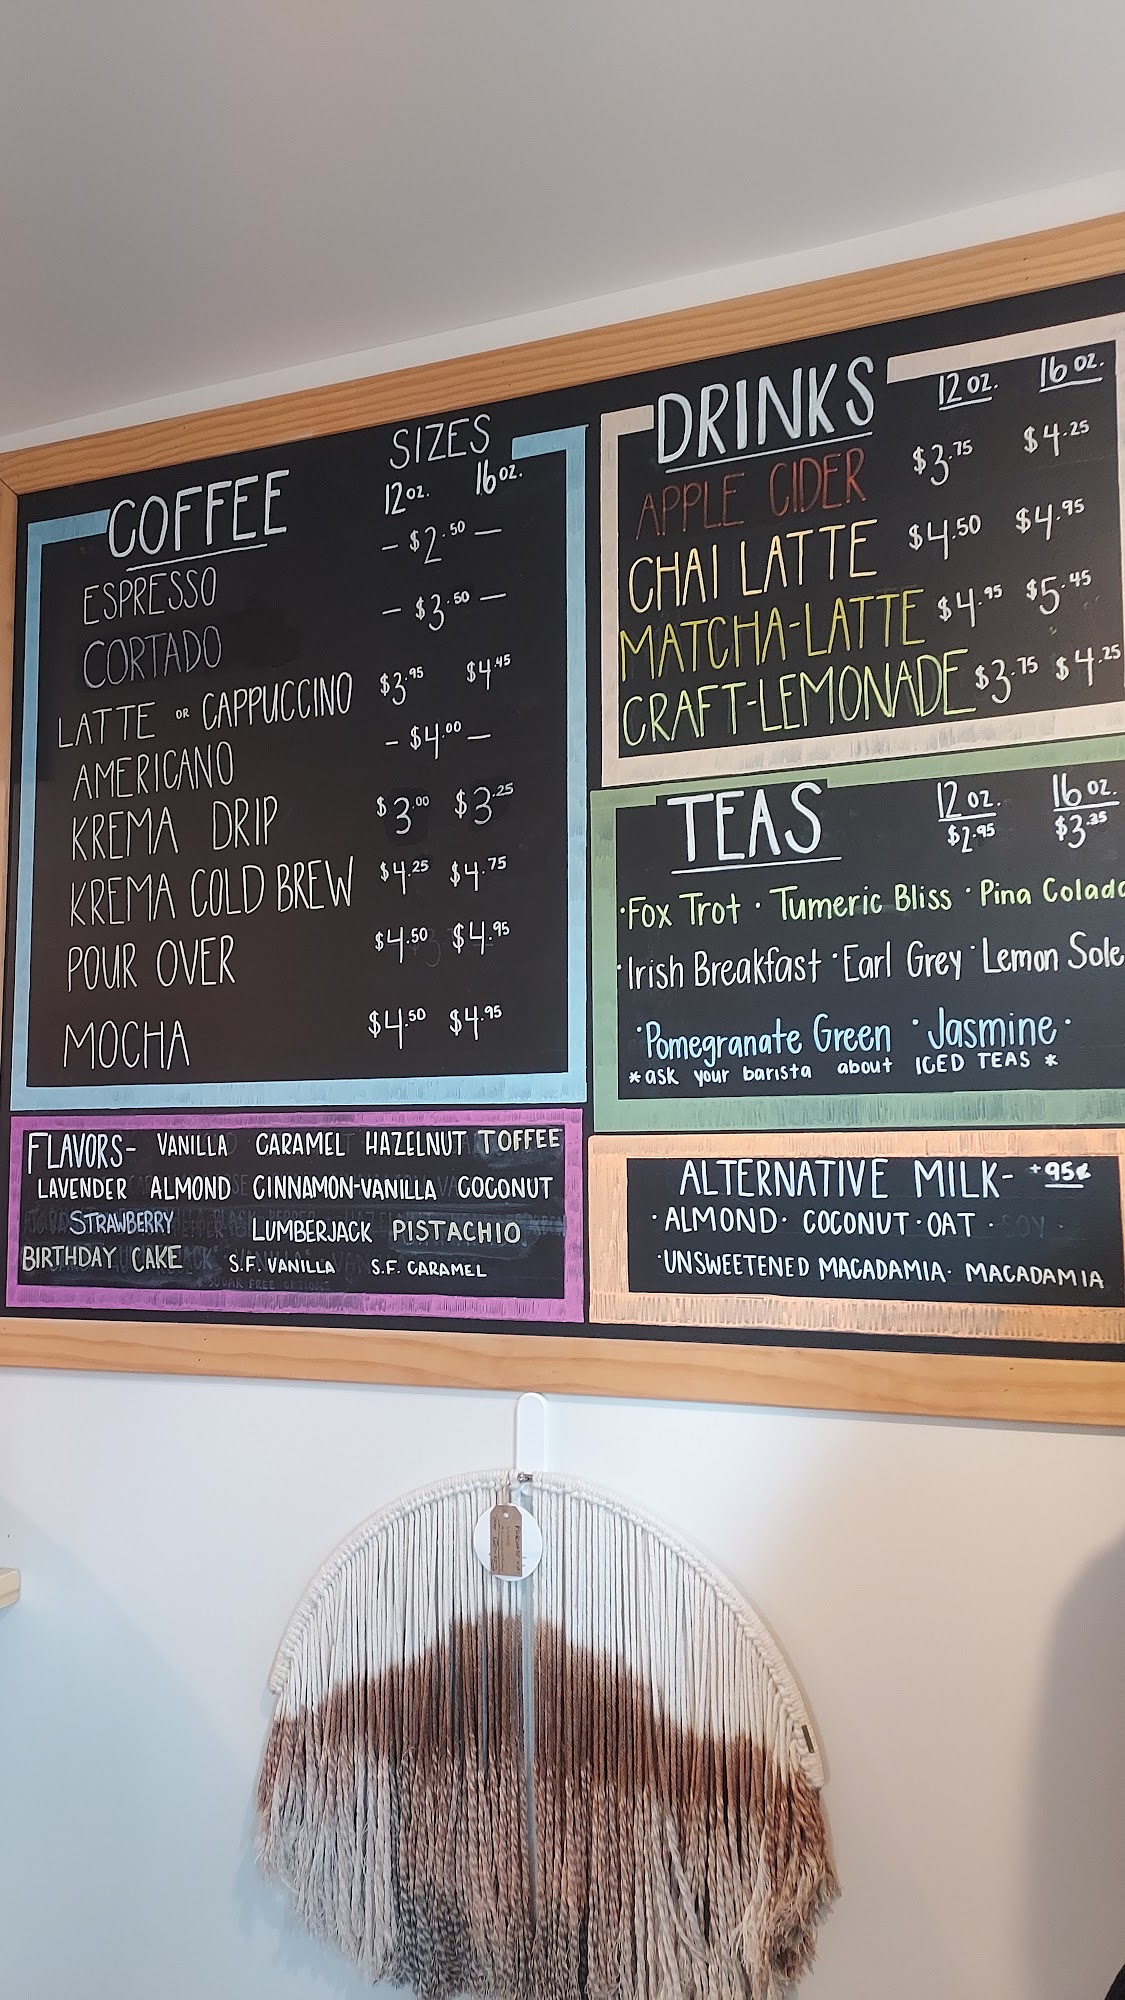 COFFEE
SIZES
12 oz. 16 oz.
ESPRESSO - $2.50 -
CORTADO - $3.50 -
LATTE OR CAPPUCCINO $3.95 $4.45
AMERICANO - $4.00 -
KREMA DRIP $3.00 $3.25
KREMA COLD BREW $4.25 $4.75
POUR OVER $4.50 $4.95
MOCHA $4.50 $4.95
FLAVORS- VANILLA CARAMEL HAZELNUT TOFFEE
LAVENDER ALMOND CINNAMON-VANILLA COCONUT
STRAWBERRY LUMBERJACK PISTACHIO
BIRTHDAY CAKE S.F. VANILLA S.F. CARAMEL
DRINKS 12 oz. 16 oz.
APPLE CIDER $3.75 $4.25
CHAI LATTE $4.50 $4.95
MATCHA-LATTE $4.95 $5.45
CRAFT-LEMONADE $3.75 $4.25
TEAS 12 oz. 16 oz.
$2.95 $3.35
·Fox Trot · Tumeric Bliss · Pina Colada
·Irish Breakfast ·Earl Grey ·Lemon Sole
·Pomegranate Green ·Jasmine·
*ask your barista about ICED TEAS *
ALTERNATIVE MILK- +95¢
·ALMOND· COCONUT·OAT · SOY ·
·UNSWEETENED MACADAMIA· MACADAMIA